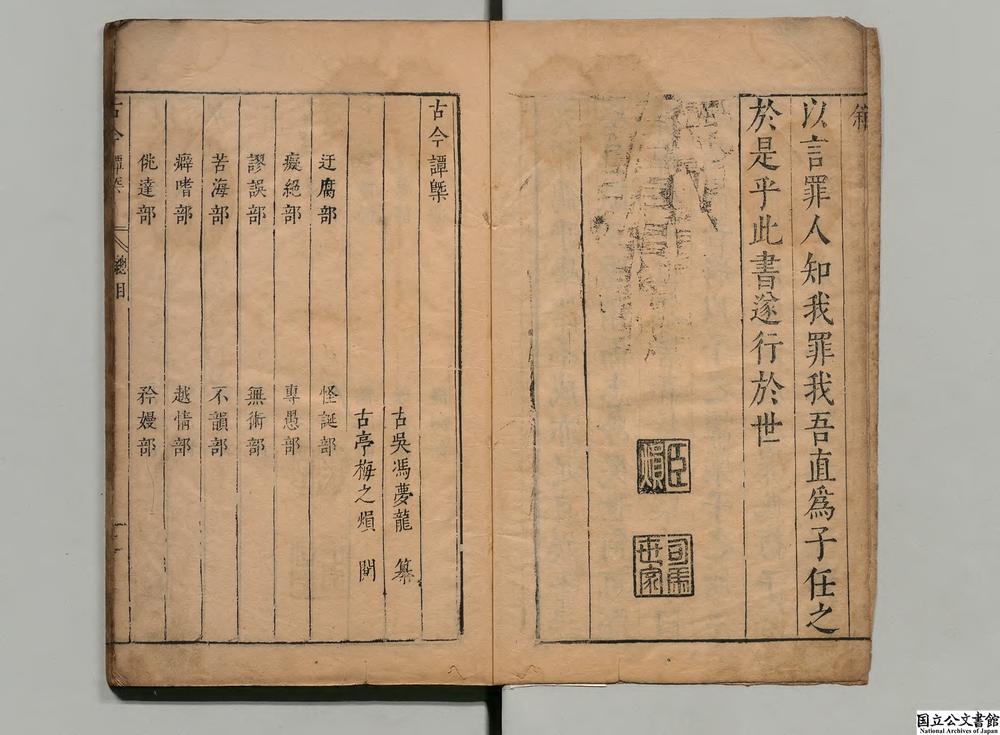 以言罪人知我罪我吾直為子任之
於是乎此書遂行於世
臣熉
司馬世家
古今譚槩
古吳馮夢龍 纂
古亭梅之熉 閱
迂腐部 怪誕部
癡絕部 專愚部
謬誤部 無術部
苦海部 不韻部
癖嗜部 越情部
佻達部 矜嫚部
古今譚槩 總目 一
国立公文書館
National Archives of Japan